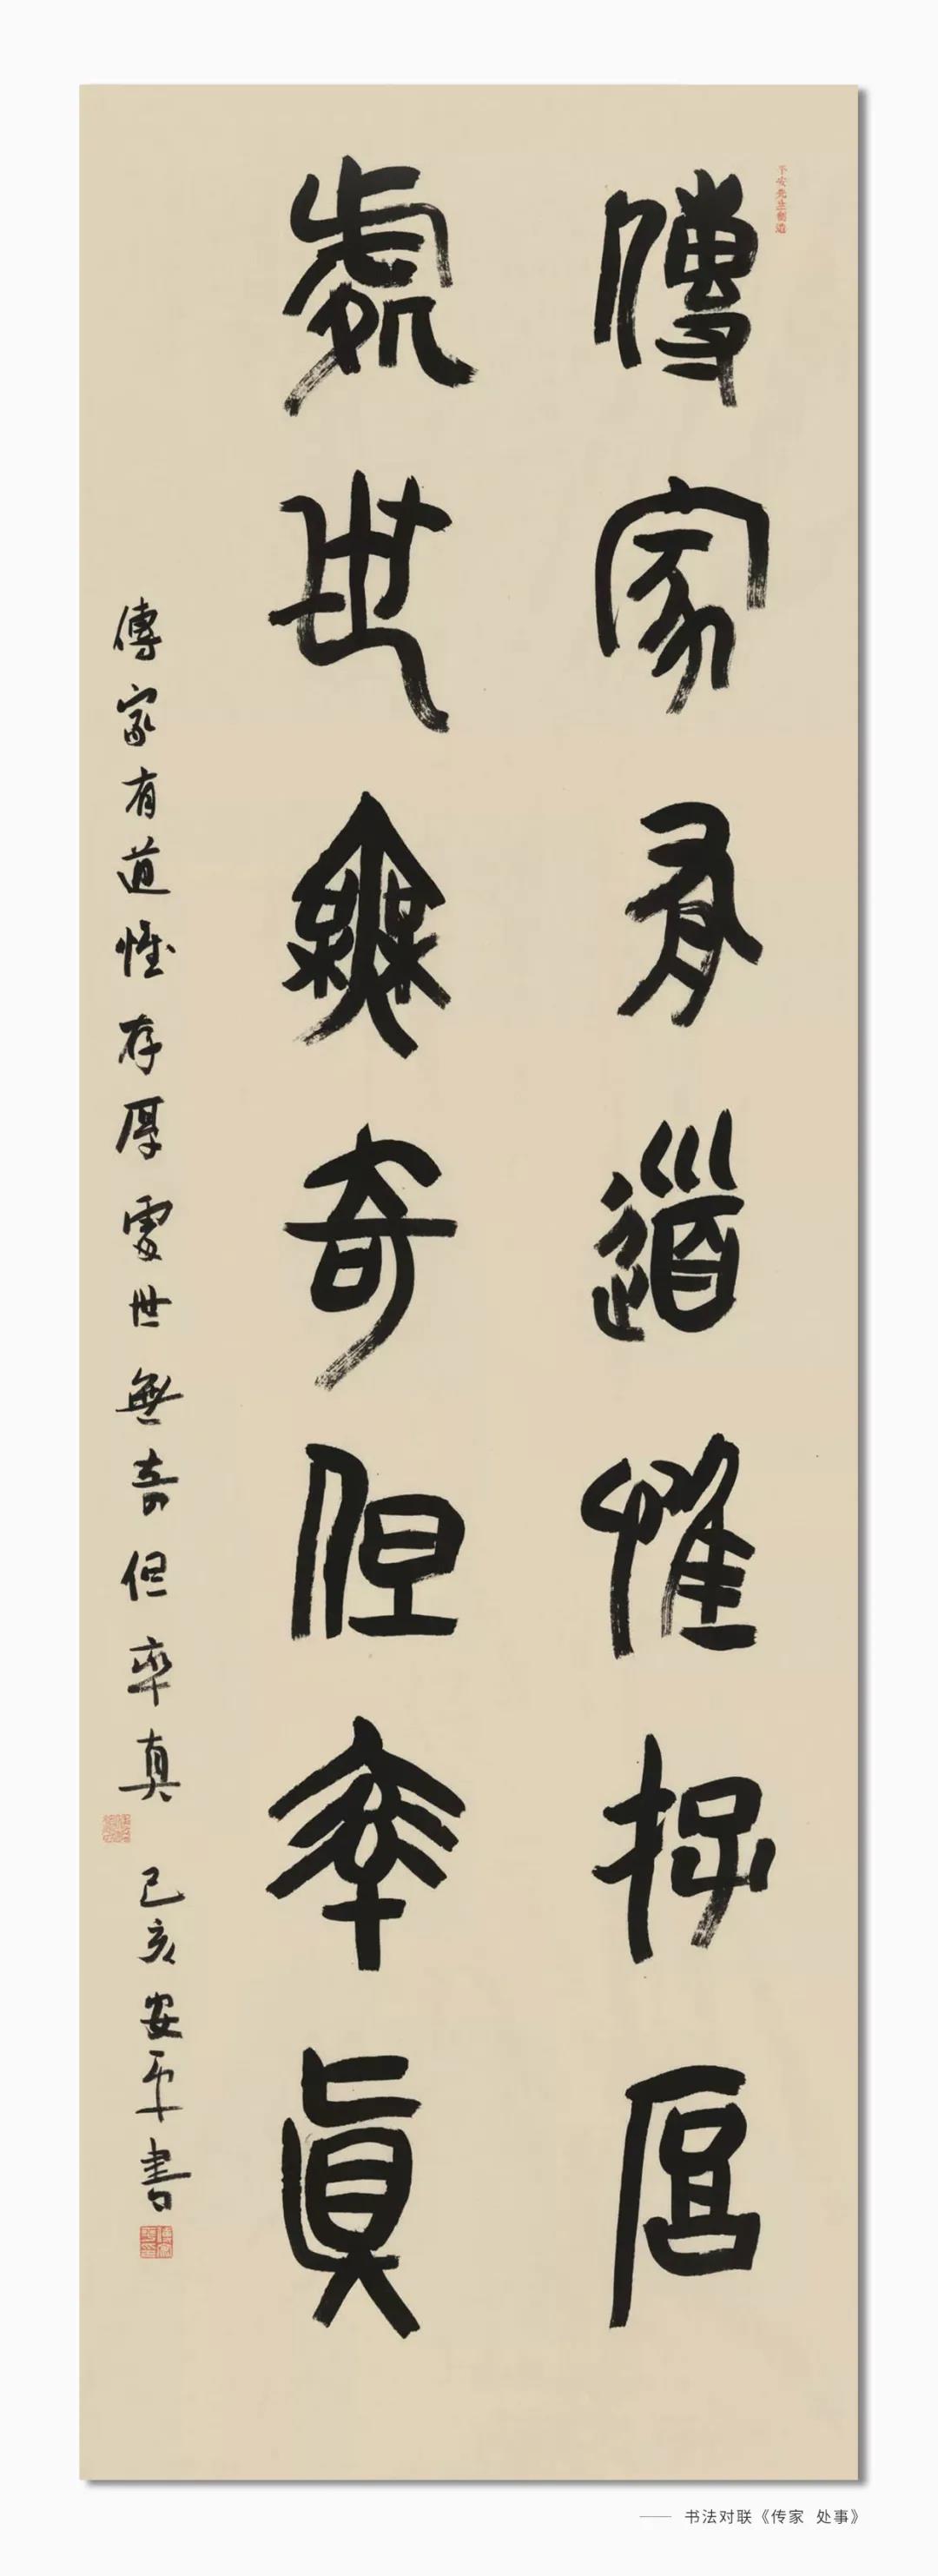 傳家有道惟存厚
處世無奇但率眞
傳家有道惟存厚處世無奇但率真
己亥安平書
—— 书法对联《传家 处事》